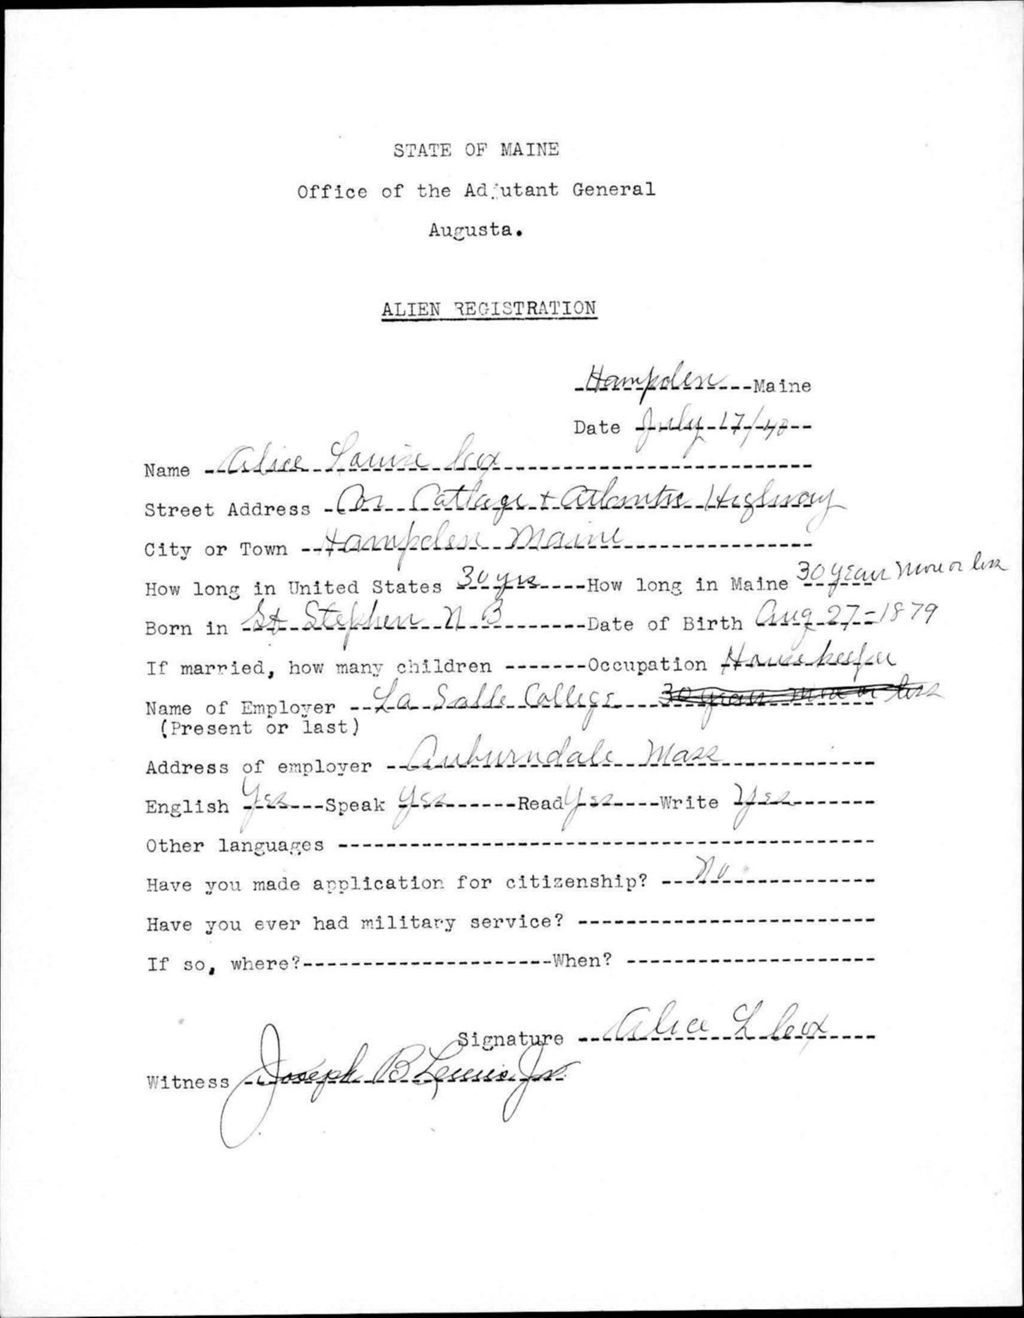 STATE OF MAINE
Office of the Adjutant General
Augusta.
ALIEN REGISTRATION
Hampden Maine
Date July 17/40
Name Alice Louise Cox
Street Address Cor Cottage + Atlantic Highway
City or Town Hampden Maine
How long in United States 30 yrs How long in Maine 30 years more or less
Born in St Stephen N B Date of Birth Aug 27-1879
If married, how many children Occupation Housekeeper
Name of Employer La Salle College 30 years more or less
(Present or last)
Address of employer Auburndale Mass
English Yes Speak Yes Read Yes Write Yes
Other languages
Have you made application for citizenship? No
Have you ever had military service?
If so, where? When?
Signature Alice L Cox
Witness Joseph B Lewis Jr.